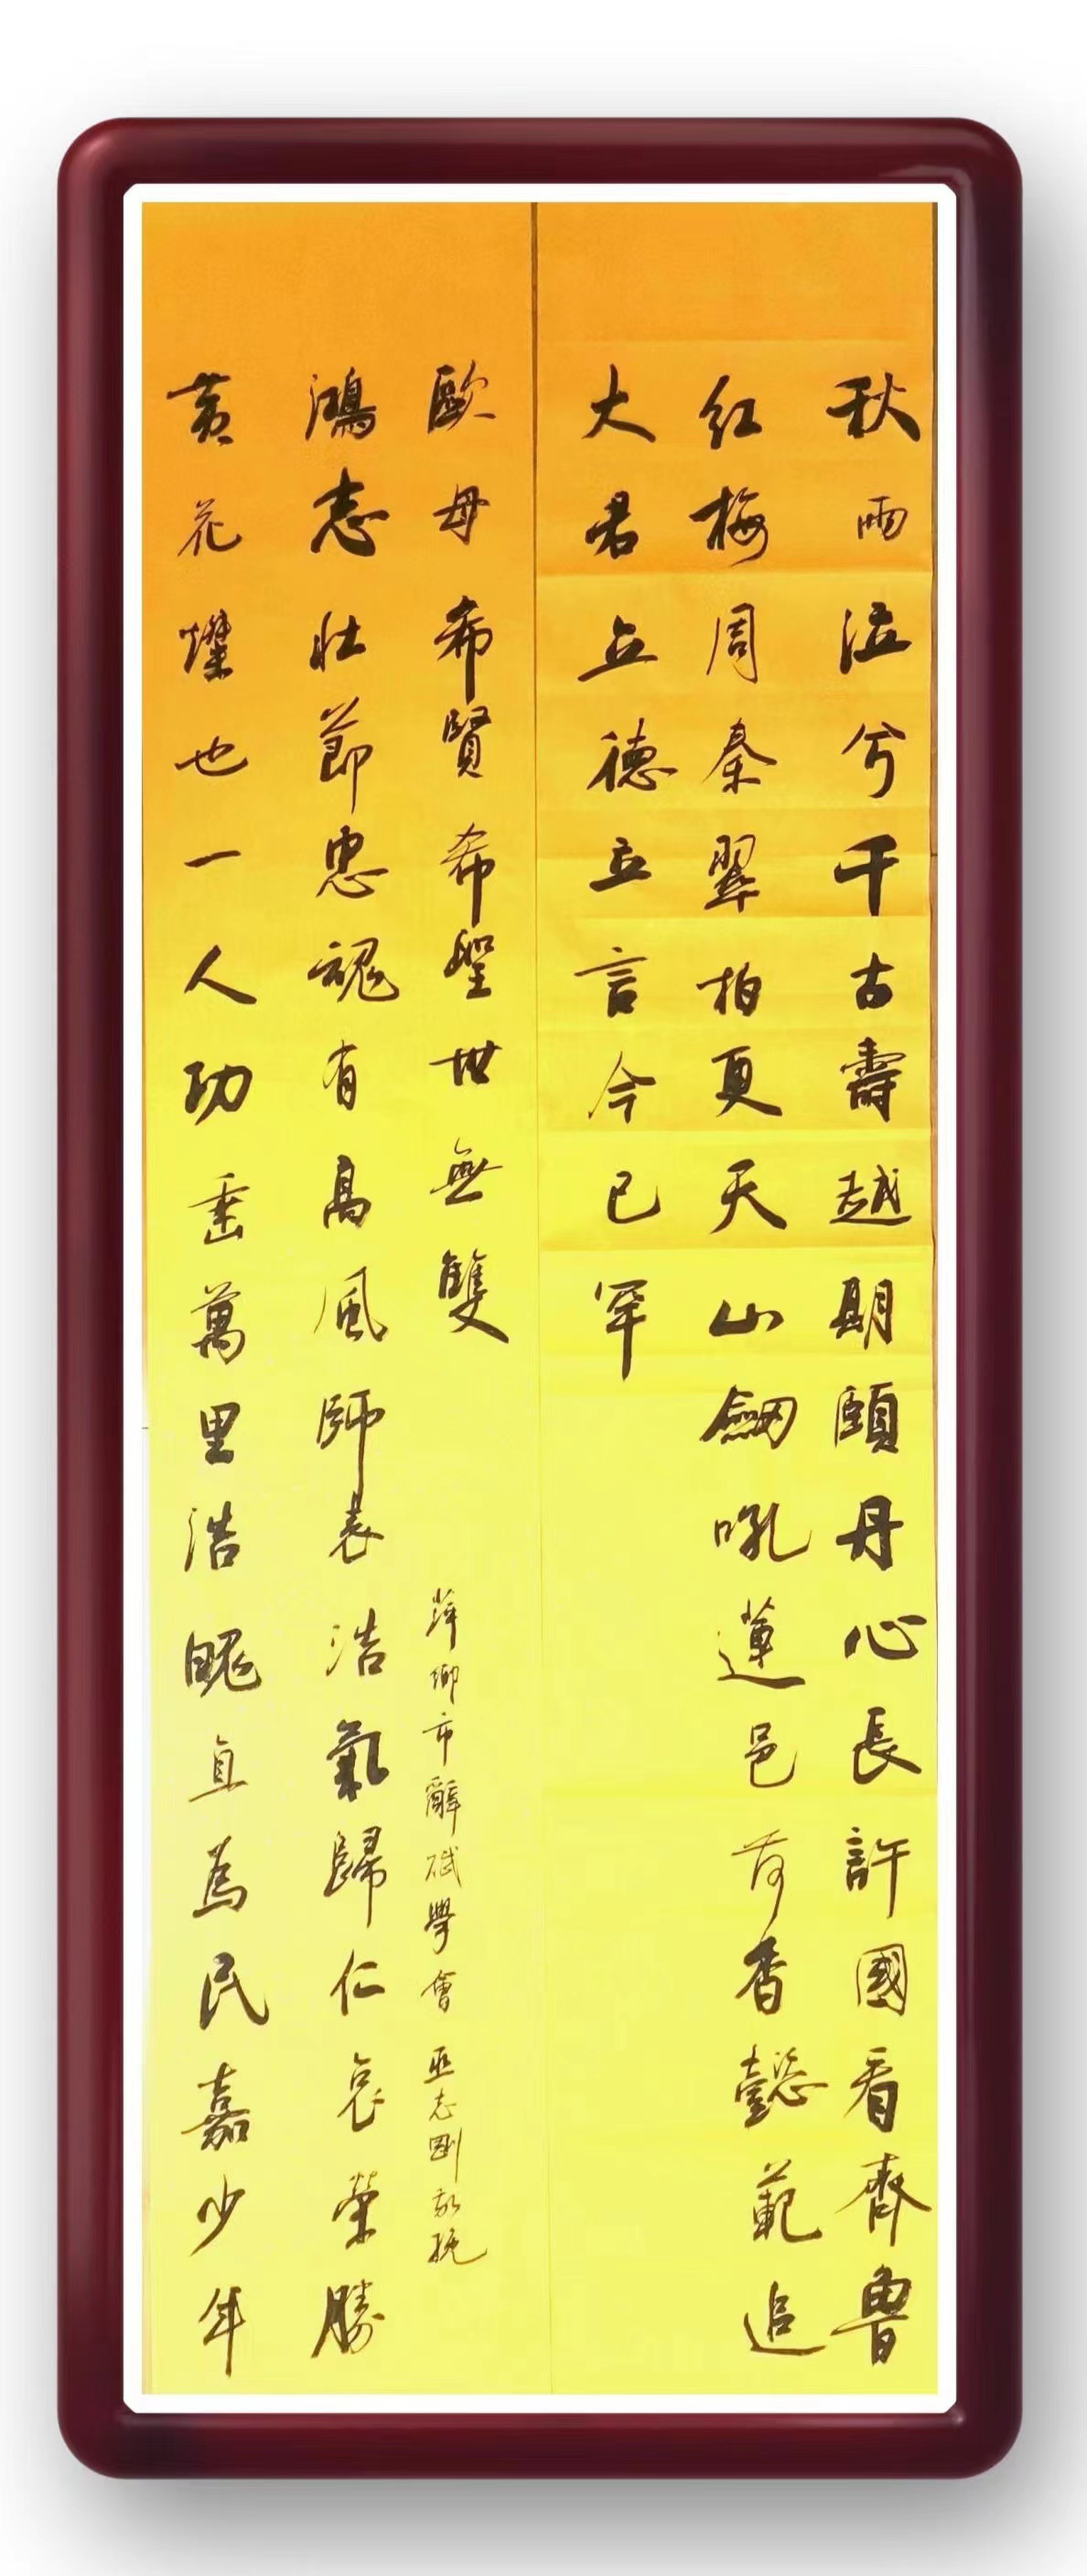 秋雨泣兮千古壽越期頤丹心長許國看齊魯
红梅周秦翠柏夏天山劒吼蓮邑荷香懿範追
大君立德立言今已罕
黄花燦也一人功垂萬里浩魄直為民嘉少年
鴻志壮節忠魂有高風師表浩氣歸仁哀榮勝
歐母希賢希聖世無雙
萍鄉市辭賦學會 巫志剛敬挽